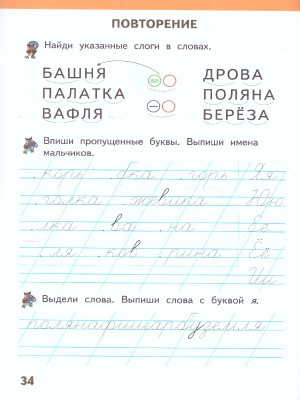 ПОВТОРЕНИЕ
Найди указанные слоги в словах.
БАШНЯ ДРОВА
ПАЛАТКА ПОЛЯНА
ВАФЛЯ БЕРЁЗА
Впиши пропущенные буквы. Выпиши имена
мальчиков.
.корь .бка .горь Яя
.голка .жевика Юю
.лка .ва .на Ее
.ля .ков .рина Ёё
Ии
Выдели слова. Выпиши слова с буквой я.
34